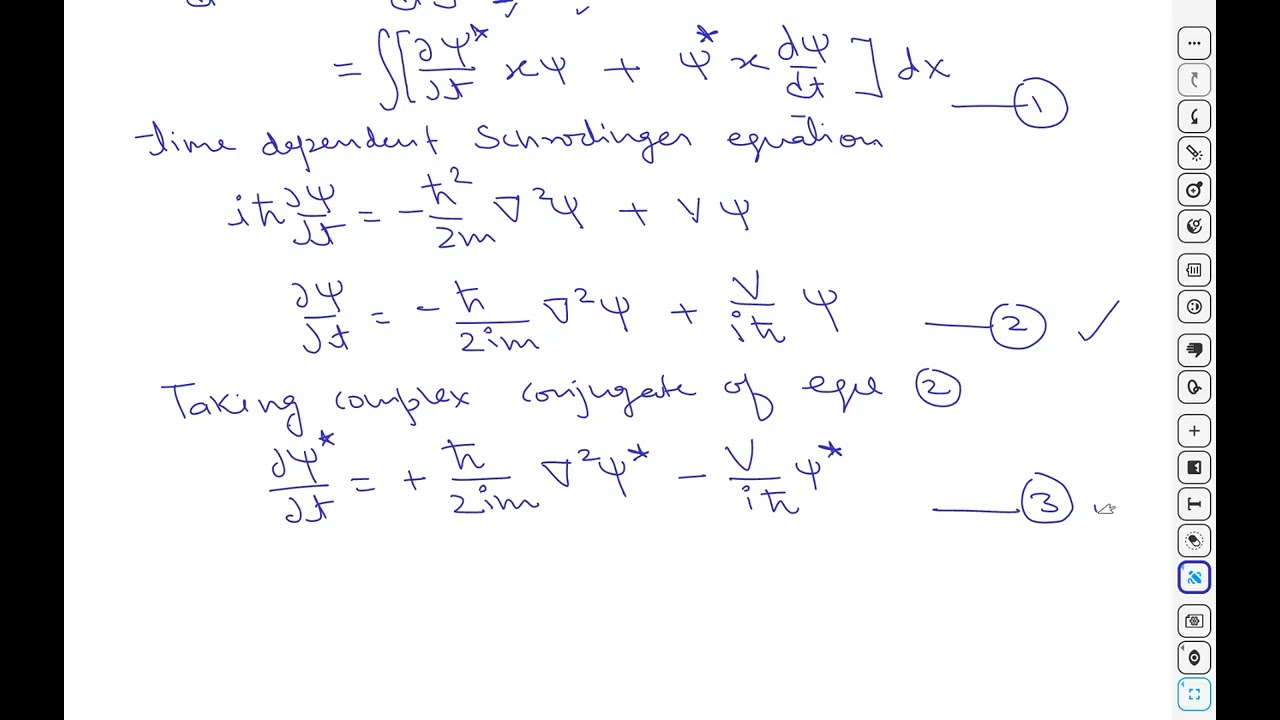 = ∫[∂ψ*/∂t xψ + ψ* x dψ/dt] dx —①
time dependent Schrodinger equation
iħ ∂ψ/∂t = -ħ²/2m ∇²ψ + Vψ
∂ψ/∂t = -ħ/2im ∇²ψ + V/iħ ψ —② ✓
Taking complex conjugate of eqn ②
∂ψ*/∂t = +ħ/2im ∇²ψ* - V/iħ ψ* —③